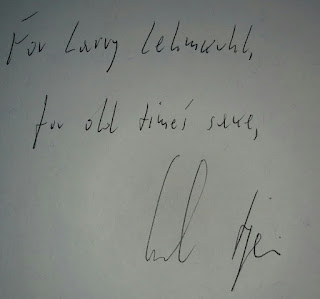 For Larry Lehmkuhl,
for old time's sake,